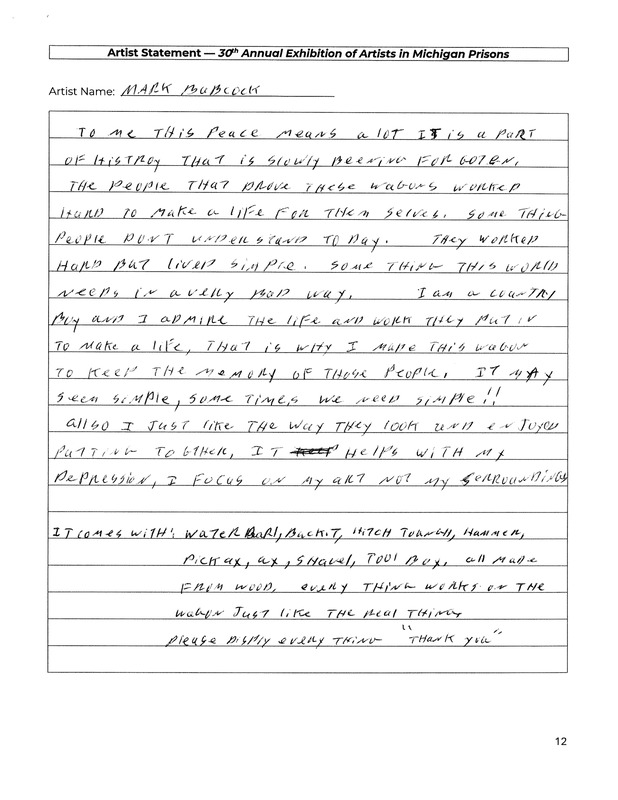 Artist Statement — 30th Annual Exhibition of Artists in Michigan Prisons
Artist Name: MARK BABCOCK
TO ME THIS Peace MEANS a LOT IT is a PART
OF HISTROY THAT is SLOWLY BEEING FORGOTEN.
THE PEOPLE THAT DROVE THESE WAGONS WORKED
HARD TO MAKE a LIFE FOR THEM SELVES. SOME THING
PEOPLE DON'T UNDERSTAND TO DAY. THEY WORKED
HARD BUT LIVED SIMPLE. SOME THING THIS WORLD
NEEDS IN a VERY BAD WAY. I am a COUNTRY
BOY AND I ADMIRE THE LIFE AND WORK THEY PUT IN
TO MAKE a LIFE, THAT is WHY I MADE THIS WAGON
TO KEEP THE MEMORY OF THOSE PEOPLE. IT MAY
SEEM SIMPLE, SOME TIMES WE NEED SIMPLE!!
ALLSO I JUST LIKE THE WAY THEY LOOK AND ENJOYED
PUTTING TOGTHER, IT HELPS WITH MY
DEPRESSION, I FOCUS ON MY ART NOT MY SERROUNDINGS
IT COMES WITH: WATER BARL, BUCKIT, HITCH TOUNGH, HAMMER,
PICKAX, AX, SHAVEL, TOOL BOX, all MADE
FROM WOOD, EVERY THING WORKS ON THE
WAGON JUST LIKE THE REAL THING
PLEASE DISPLY EVERY THING "THANK YOU"
12